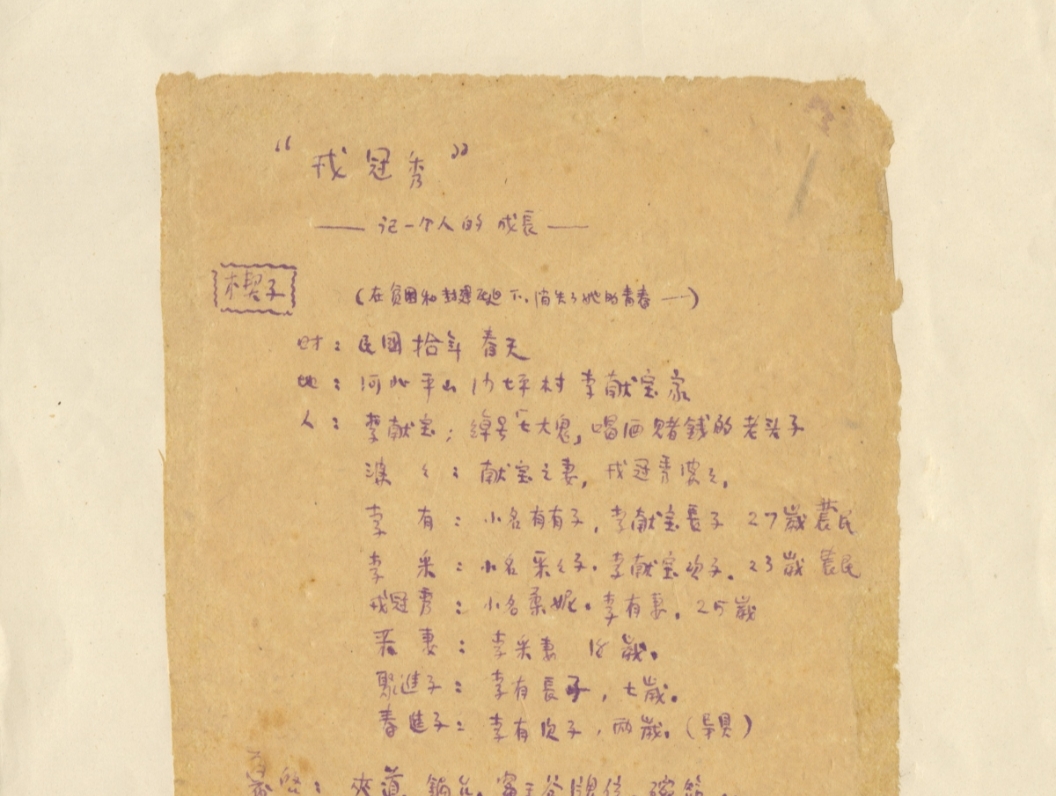 “戎冠秀”
—— 记一个人的成長 ——
楔子 (在貧困和封建压迫下,消失了她的青春 —)
时：民國拾年 春天
地：河北平山 坪村 李献宝家
人：李献宝；綽号"七大鬼,喝酒赌錢的老头子
婆々：献宝之妻,戎冠秀婆々.
李有：小名有有子,李献宝長子 27歲 農民
李采：小名采々子.李献宝次子.23歲 農民
戎冠秀：小名柔妮.李有妻.25歲
采妻：李采妻 18歲.
聚進子：李有長子,七歲.
春進子：李有次子,两歲.